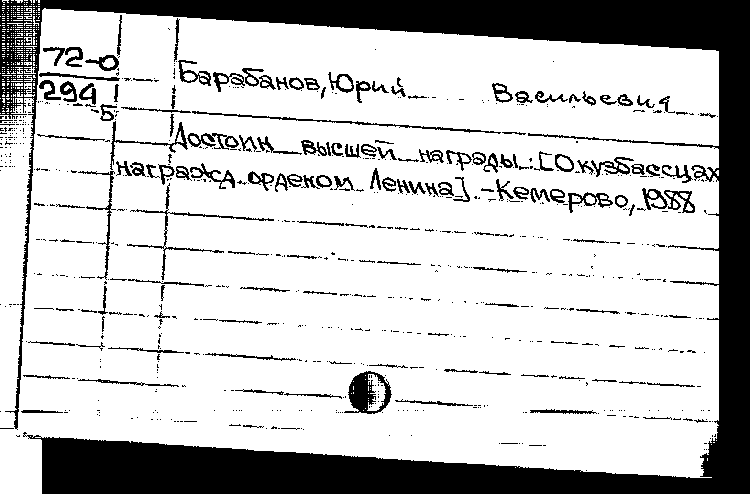 72-0
294-Б
Барабанов, Юрий Васильевич
Достоин высшей награды: [О кузбассцах
награжд. орденом Ленина]. - Кемерово, 1988